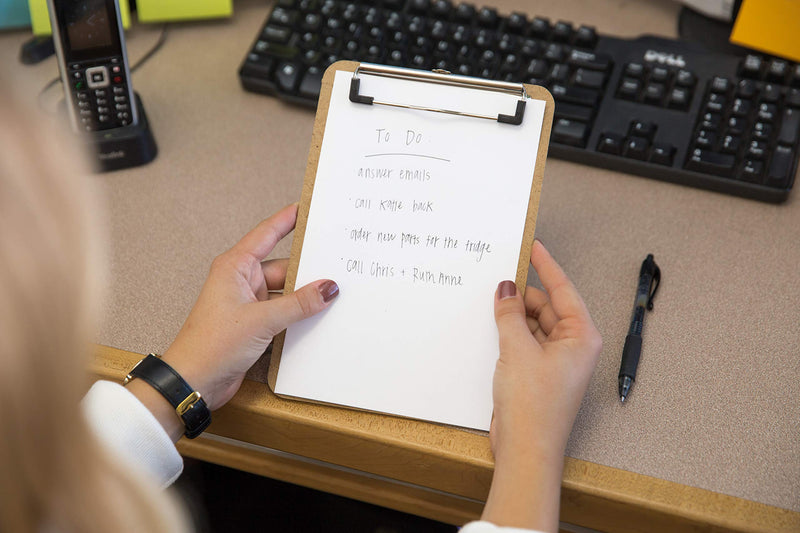 DELL
To Do:
answer emails
· call Katie back
· order new parts for the fridge
· call Chris + RuthAnne